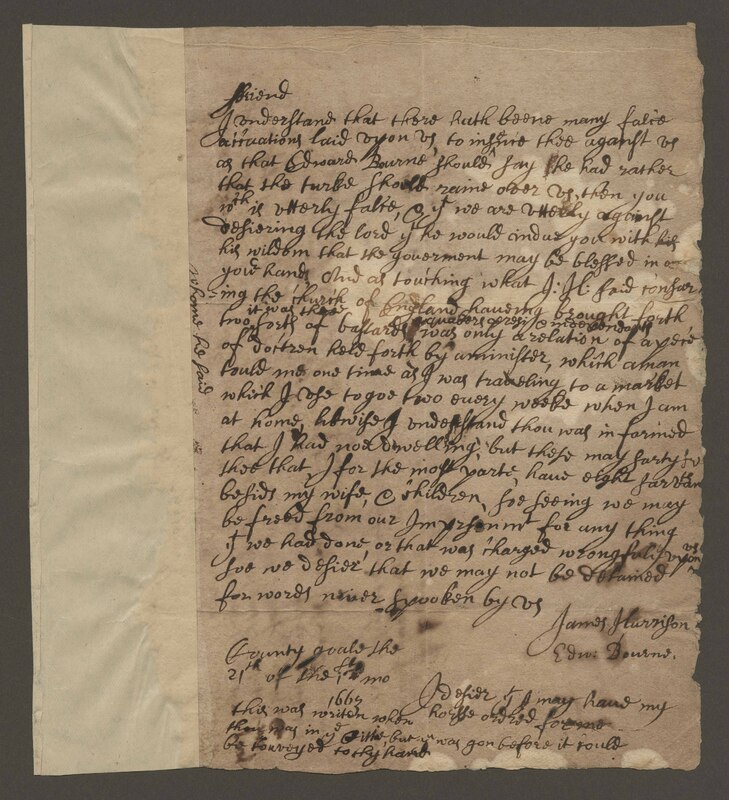 ffriend
I vnderstand that there hath beene many falce
accusations laid vpon vs, to insence thee against vs
as that Edward Bourne should say he had rather
that the turke should raine over vs, then you
wch is vtterly falce, & yt we are vtterly against
desiering the lord yt he would indue you with his
his wisdom that the goverment may be blessed in
your hands And as touching what J: H: said consar
ing the church of England haveing brought forth
it was these
two sorts of bastards quakers &
was only a relation of a pece
of doctren held forth by a minister, which a man
tould me one time as I was traveling to a market
which I vse to goe two every weeke when I am
at home, likwise I vnderstand thou was informed
that I had noe dwelling, but these may sartyfy
thee that I for the most parte, have eight sarvan
besids my wife & children, soe seeing we may
be freed from our Imprisonment for any thing
yt we had done, or that was charged wrongfully vpon vs
soe we desier that we may not be detained
for words never spooken by vs
James Harrison
Edw: Bourne.
County goale the
21th of the mo
1667
I desier yt I may have my
horse ordred for me
this was written when
thou was in ye Citte but was gon before it could
be convayed to thy hand
whome he said